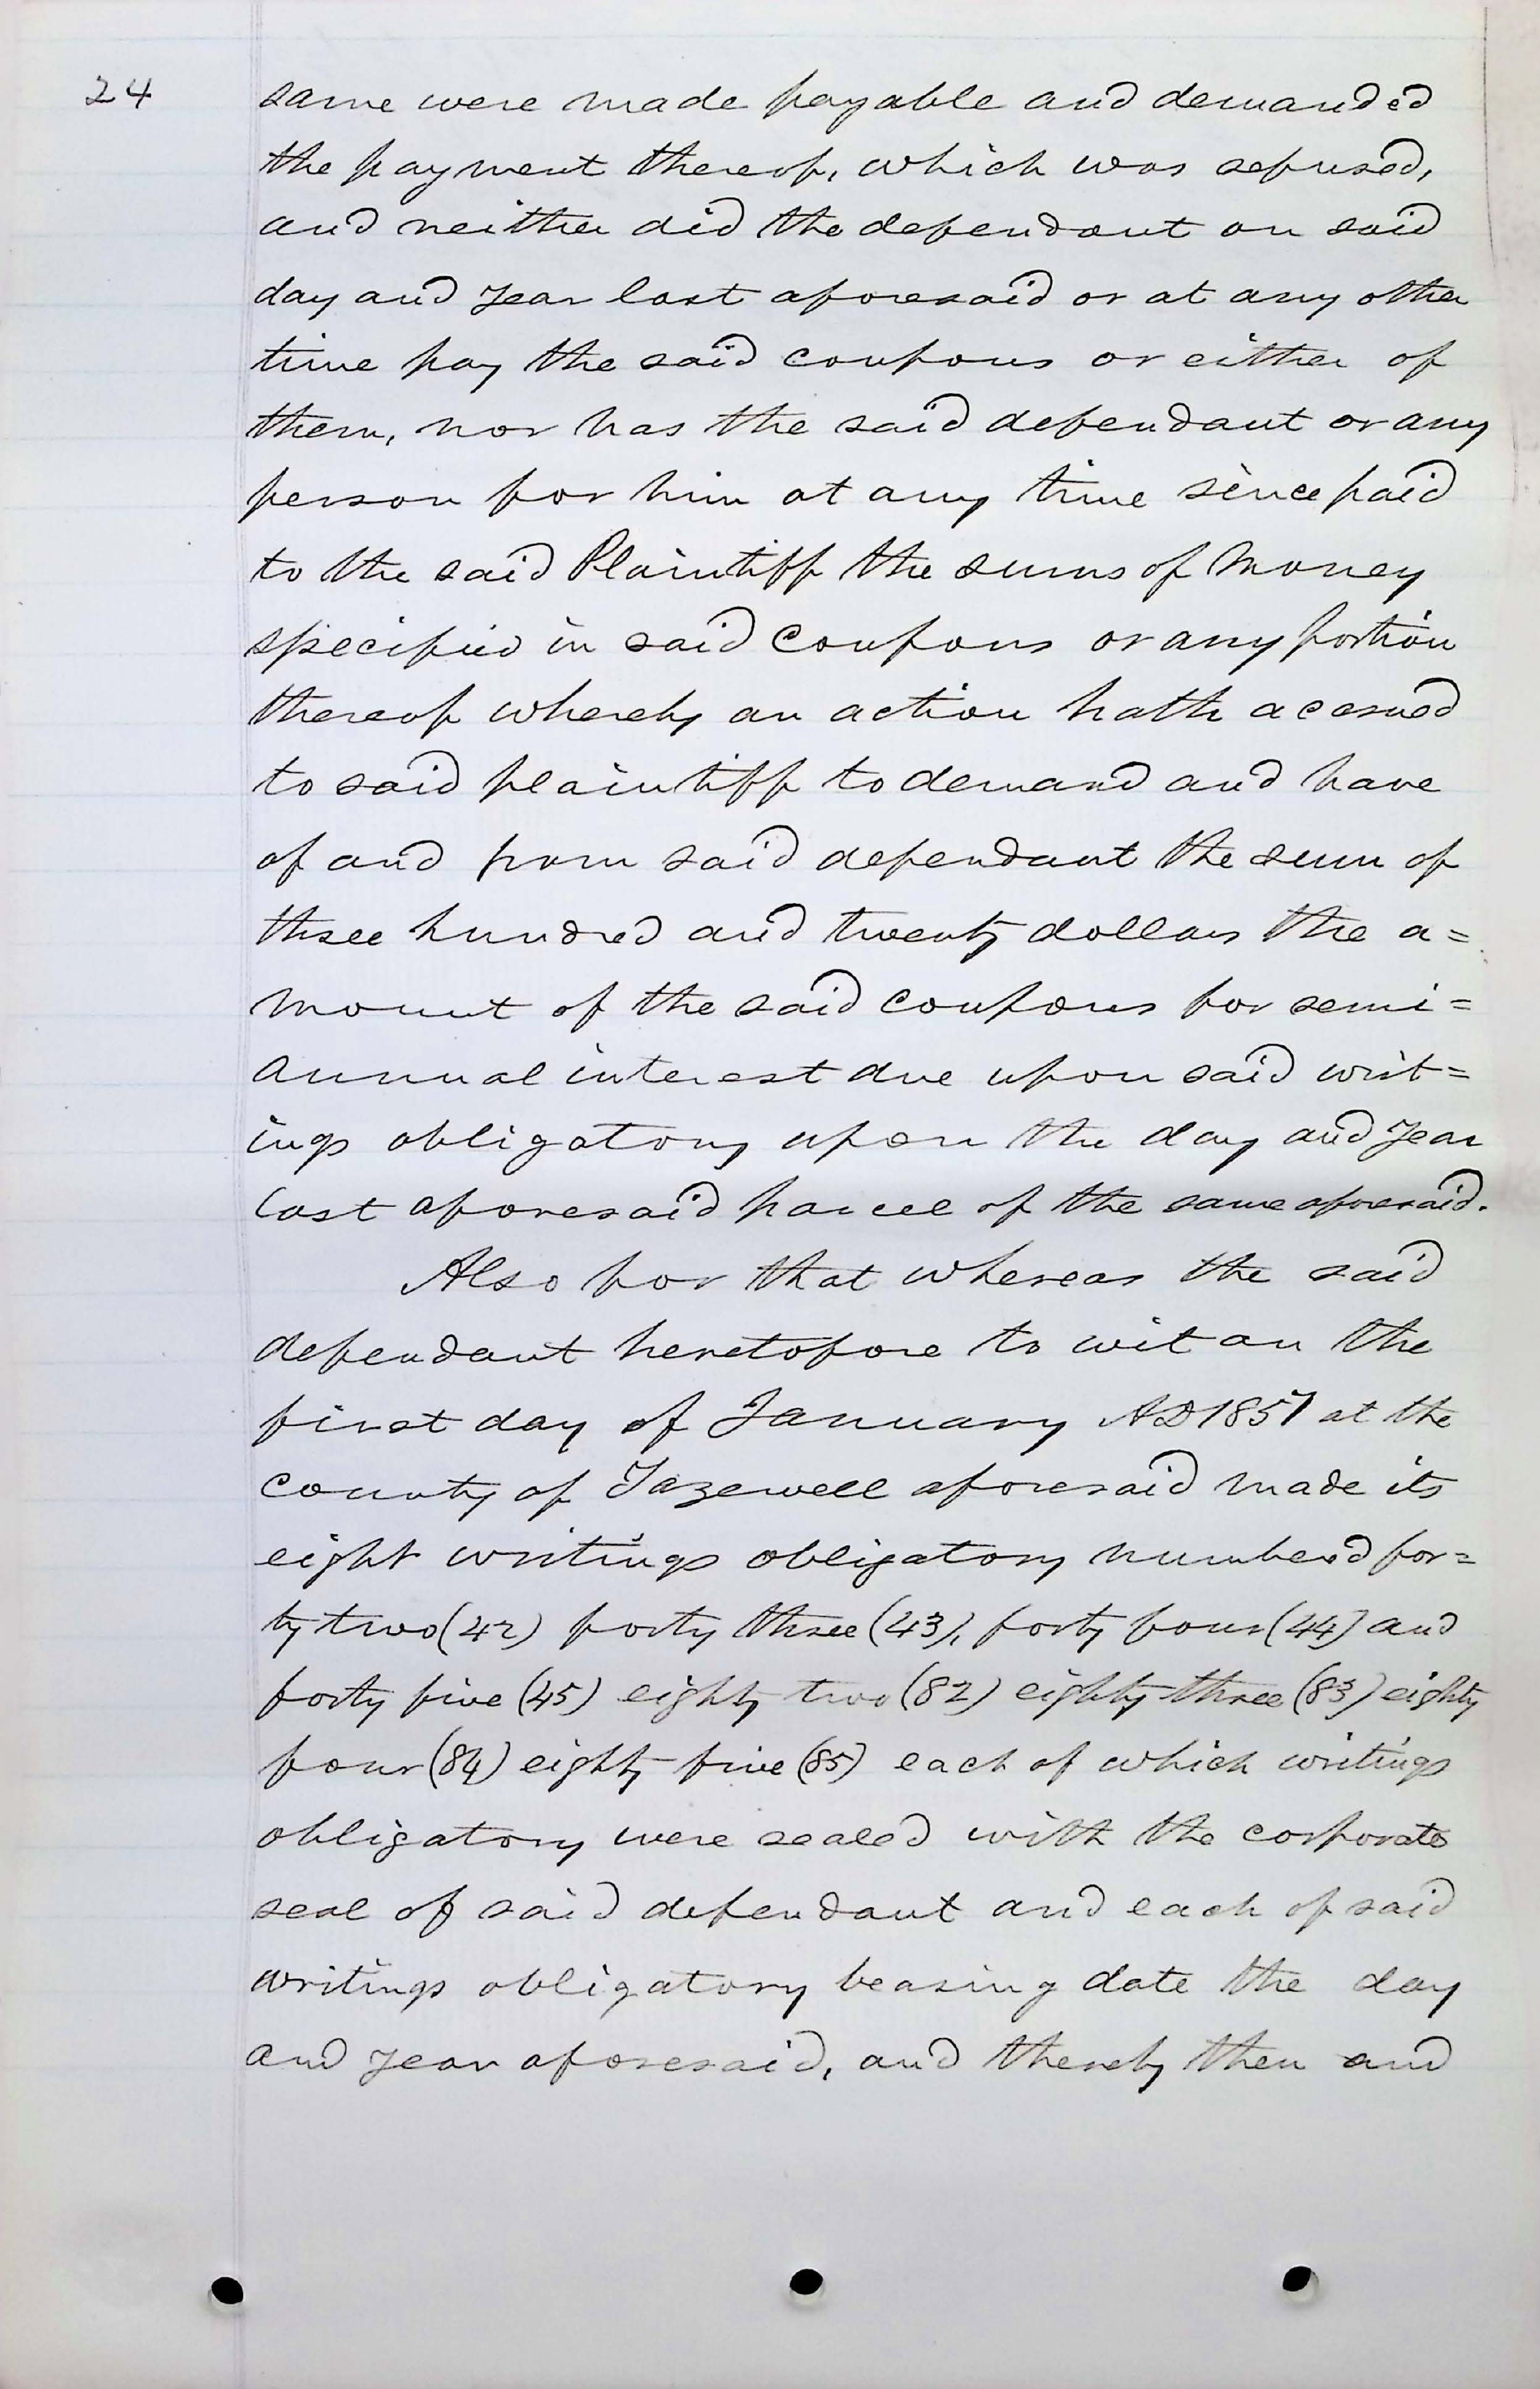 24
same were made payable and demanded
the payment thereof, which was refused,
and neither did the defendant on said
day and year last aforesaid or at any other
time pay the said coupons or either of
them, nor has the said defendant or any
person for him at any time since paid
to the said Plaintiff the sums of money
specified in said coupons or any portion
thereof whereby an action hath accrued
to said plaintiff to demand and have
of and from said defendant the sum of
three hundred and twenty dollars the a=
mount of the said coupons for semi=
annual interest due upon said writ=
ings obligatory upon the day and year
last aforesaid parcel of the same aforesaid.
Also for that whereas the said
defendant heretofore to wit on the
first day of January AD 1857 at the
county of Tazewell aforesaid made its
eight writings obligatory numbered for=
ty two (42) forty three (43), forty four (44) and
forty five (45) eighty two (82) eighty three (83) eighty
four (84) eighty five (85) each of which writings
obligatory were sealed with the corporate
seal of said defendant and each of said
writings obligatory bearing date the day
and year aforesaid, and thereby then and